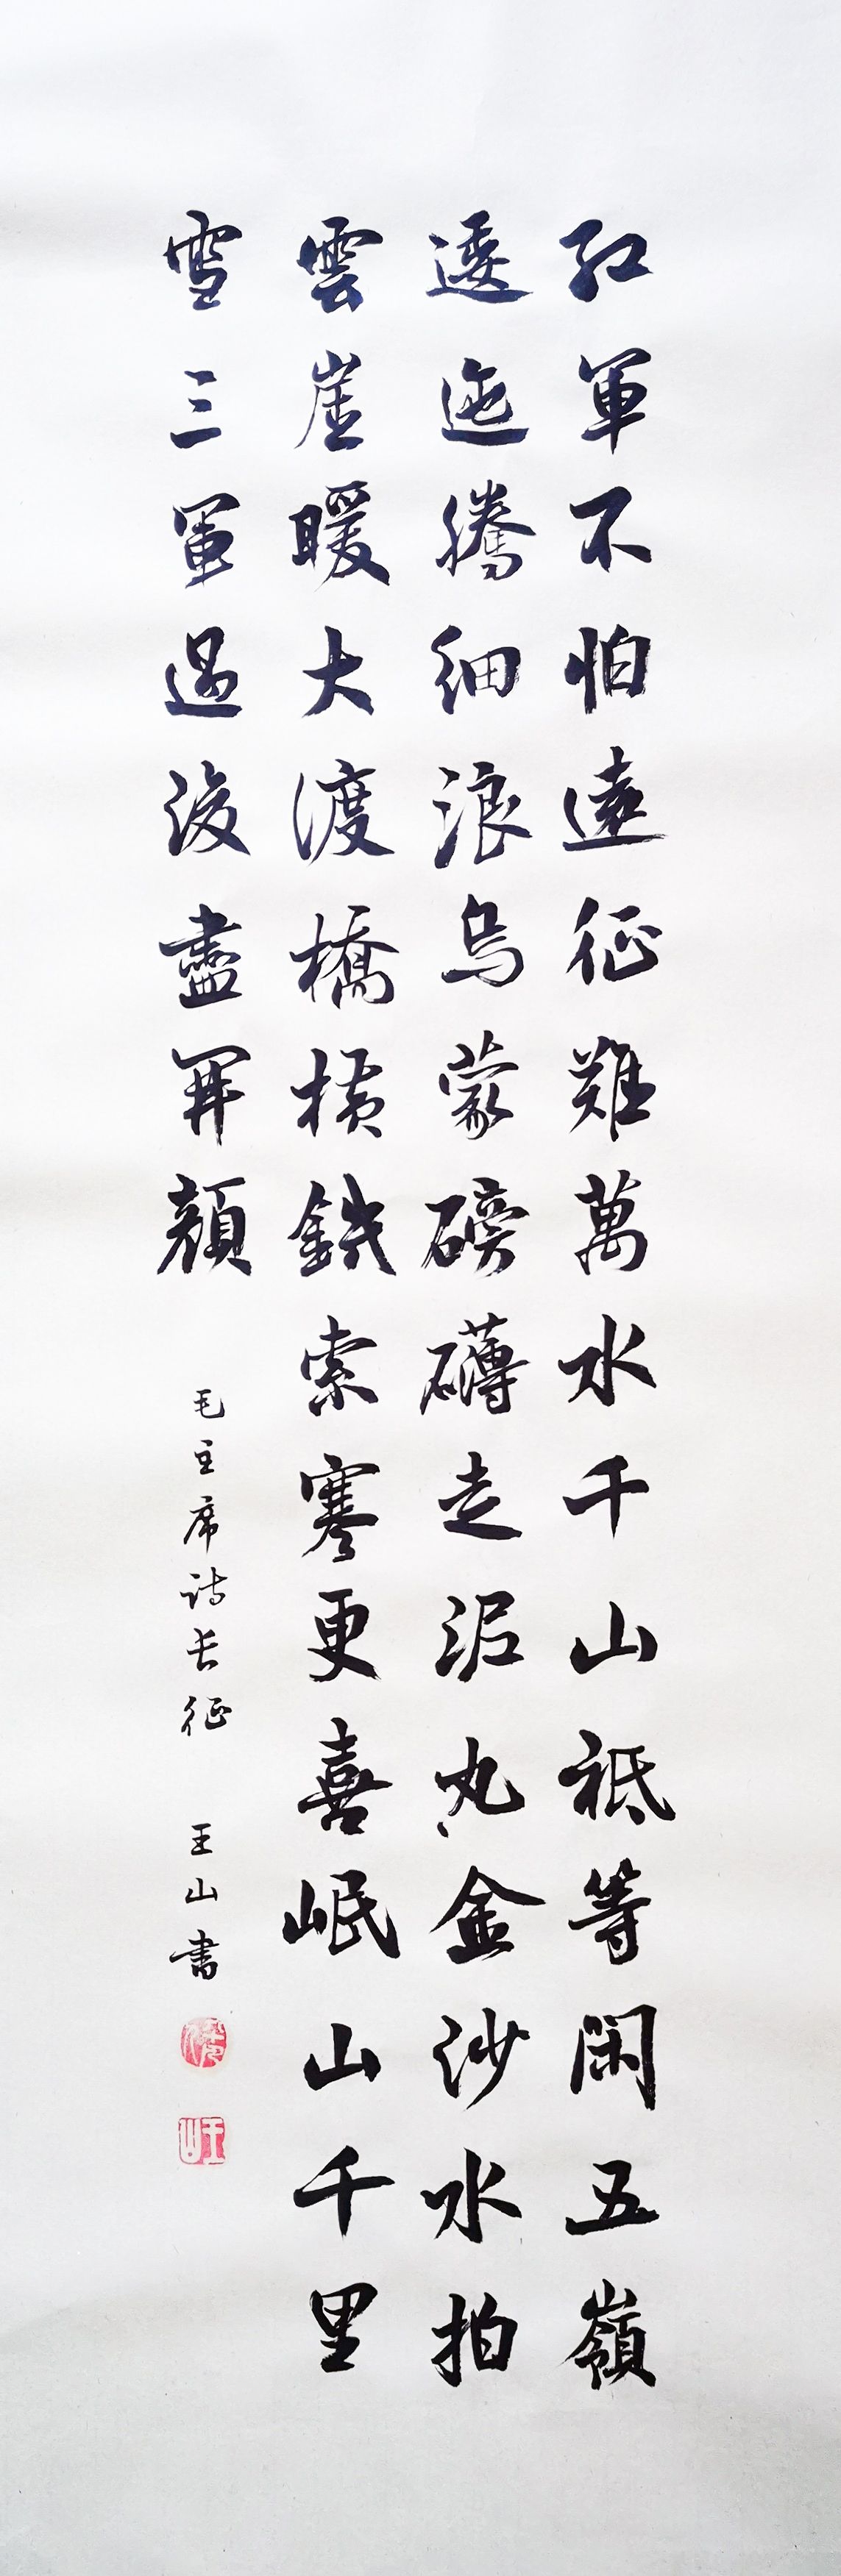 紅軍不怕遠征難萬水千山祇等閑五嶺
逶迤騰細浪烏蒙磅礴走泥丸金沙水拍
雲崖暖大渡橋橫鐵索寒更喜岷山千里
雪三軍過後盡開顏
毛主席詩長征 王山書
王山